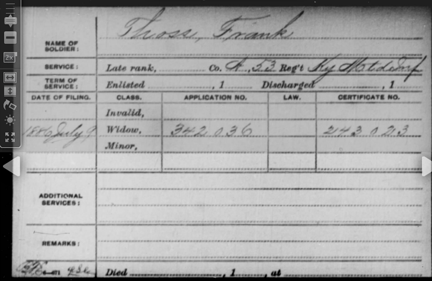 Thoss, Frank
NAME OF SOLDIER:
SERVICE: Late rank, Co. K, 53 Reg't Ky Mtd Inf
TERM OF SERVICE: Enlisted , 1 Discharged , 1
DATE OF FILING. CLASS. APPLICATION NO. LAW. CERTIFICATE NO.
Invalid,
1886 July 9 Widow, 342 036 243 023
Minor,
ADDITIONAL SERVICES:
REMARKS:
Died , 1 , at